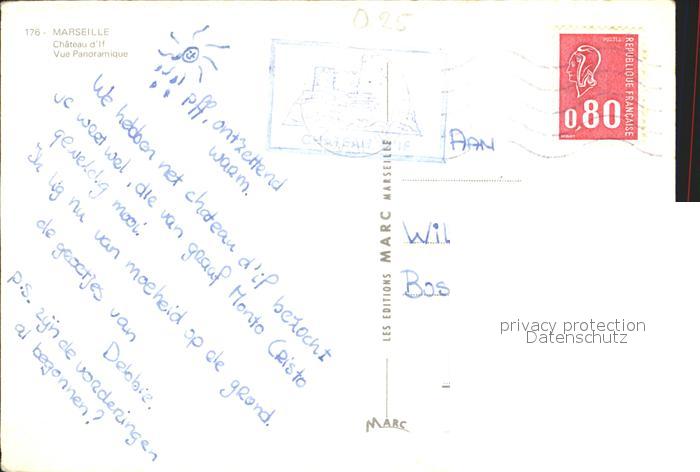 176 - MARSEILLE
Château d'If
Vue Panoramique
0 25
pff, ontzettend
warm.
We hebben net chateau d'if bezocht
je weet wel, die van graaf Monto Cristo
geweldig mooi.
Ik lig nu van moeheid op de grond.
de groetjes van
Debbie.
p.s. zijn de vorderingen
al begonnen?
CHATEAU D'IF
POSTES
RÉPUBLIQUE FRANÇAISE
0,80
LES EDITIONS MARC MARSEILLE
MARC
AAN
Wil
Bos
privacy protection
Datenschutz